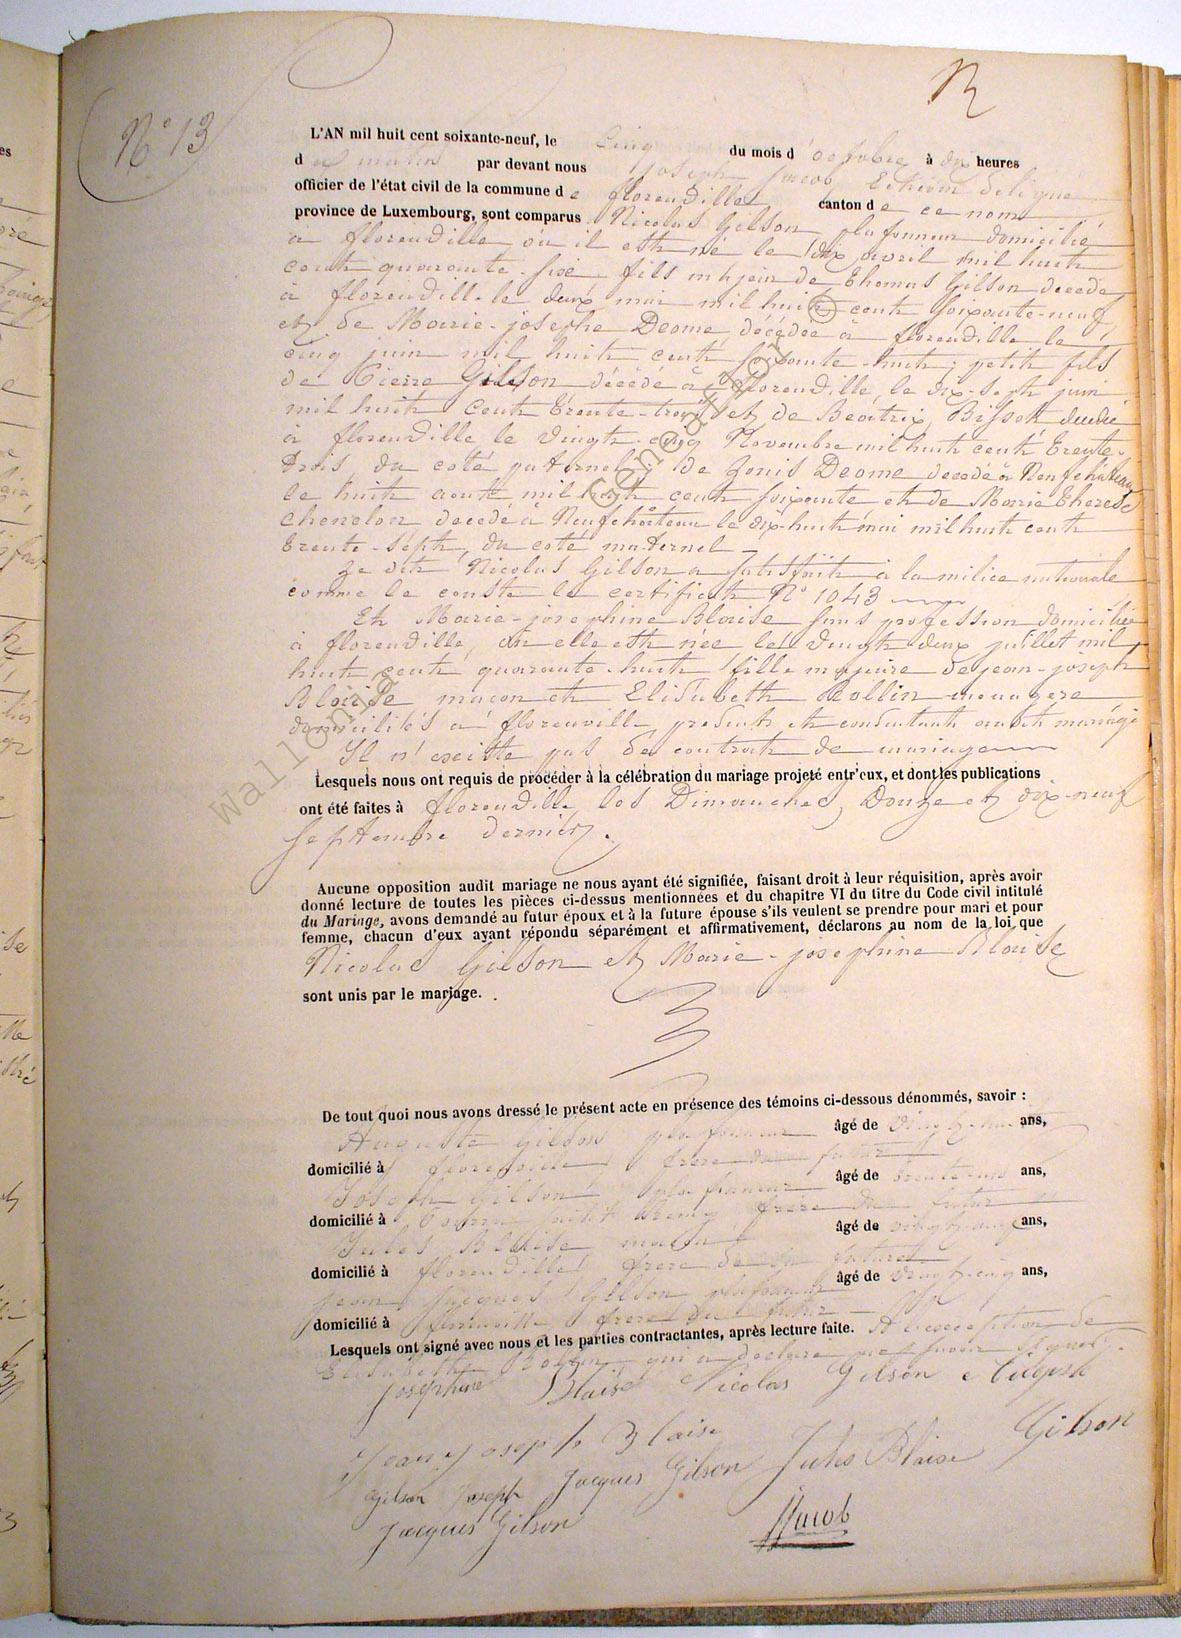 N° 13
L'AN mil huit cent soixante-neuf, le Cinq du mois d'octobre à dix heures
du matin par devant nous Joseph Jacob Echevin délégué
officier de l'état civil de la commune de florenville canton de ce nom
province de Luxembourg, sont comparus Nicolas Gilson, plafonneur domicilié
à florenville où il est né le dix avril mil huit
cent quarante-six, fils majeur de Thomas Gilson décédé
à florenville le deux mai mil huit cent soixante-neuf
et de Marie-josephe Deome, décédée à florenville le
cinq juin mil huit cent soixante-huit, petit fils
de Pierre Gilson décédé à florenville, le dix-sept juin
mil huit cent trente-trois et de Beatrix Bissot décédée
à florenville le vingt-cinq Novembre mil huit cent trente-
trois, du coté paternel; de Louis Deome decedé à Neufchateau
le huit aout mil huit cent soixante et de Marie Therese
chenelon decedé à Neufchâteau le dix-huit mai mil huit cent
trente-sept, du coté maternel
Le dit Nicolas Gilson a satisfait à la milice nationale
comme le conste le certificat N° 1043
Et Marie-josephine Blaise sans profession domiciliée
à florenville, où elle est née le vingt deux juillet mil
huit cent quarante-huit fille majeure de jean-joseph
Blaise, maçon et Elisabeth Rollin menagere
domiciliés à florenville, presents et consentants audit mariage
Il n'existe pas de contrat de mariage
Lesquels nous ont requis de procéder à la célébration du mariage projeté entr'eux, et dont les publications
ont été faites à florenville les Dimanches, Douze et dix-neuf
septembre dernier.
Aucune opposition audit mariage ne nous ayant été signifiée, faisant droit à leur réquisition, après avoir
donné lecture de toutes les pièces ci-dessus mentionnées et du chapitre VI du titre du Code civil intitulé
du Mariage, avons demandé au futur époux et à la future épouse s'ils veulent se prendre pour mari et pour
femme, chacun d'eux ayant répondu séparément et affirmativement, déclarons au nom de la loi que
Nicolas Gilson et Marie-josephine Blaise
sont unis par le mariage.
De tout quoi nous avons dressé le présent acte en présence des témoins ci-dessous dénommés, savoir :
Auguste Gilson plafonneur âgé de ans,
domicilié à florenville frere du futur
Joseph Gilson plafonneur âgé de trente-un ans,
domicilié à frère du futur
Jules Blaise, maçon âgé de ans,
domicilié à florenville, frere de la future
jean jacques Gilson plafonneur âgé de vingt-cinq ans,
domicilié à florenville frere du futur
Lesquels ont signé avec nous et les parties contractantes, après lecture faite. A l'exception de
Elisabeth Rollin, qui a déclaré ne savoir signer.
Josephine Blaise Nicolas Gilson August
Gilson
Jean Joseph Blaise
Gilson Joseph Jacques Gilson Jules Blaise
Jacques Gilson
JJacob
© wallonie Généalogie